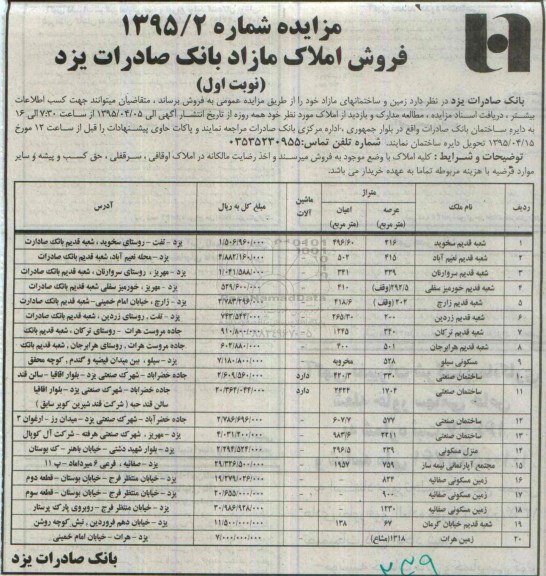 مزایده شماره ۱۳۹۵/۲
فروش املاک مازاد بانک صادرات یزد
(نوبت اول)
بانک صادرات یزد در نظر دارد زمین و ساختمانهای مازاد خود را از طریق مزایده عمومی به فروش برساند ، متقاضیان میتوانند جهت کسب اطلاعات
بیشتر ، دریافت اسناد مزایده ، مطالعه مدارک و بازدید از املاک مورد نظر خود همه روزه از تاریخ انتشار آگهی الی ۱۳۹۵/۰۴/۰۵ از ساعت ۷:۳۰ الی ۱۶
به دایره ساختمان بانک صادرات واقع در بلوار جمهوری ، اداره مرکزی بانک صادرات مراجعه نمایند و پاکات حاوی پیشنهادات را قبل از ساعت ۱۲ مورخ
۱۳۹۵/۰۴/۱۵ تحویل دایره ساختمان نمایند. شماره تلفن تماس: ۰۳۵۳۵۲۳۰۹۵۵
توضیحات و شرایط : کلیه املاک با وضع موجود به فروش میرسند و اخذ رضایت مالکانه در املاک اوقافی ، سرقفلی ، حق کسب و پیشه و سایر
موارد فرضیه با هزینه مربوطه تماما به عهده خریدار می باشد.
ردیف نام ملک متراژ عرصه (متر مربع) اعیان (متر مربع) ماشین آلات مبلغ کل به ریال آدرس
۱ شعبه قدیم سخوید ۴۱۶ ۴۹۶/۶۰ - ۱/۵۰۶/۹۶۰/۰۰۰ یزد - تفت - روستای سخوید ، شعبه قدیم بانک صادرات
۲ شعبه قدیم نعیم آباد ۴۱۵ ۵۰۲ - ۴/۸۸۲/۱۶۰/۰۰۰ یزد - محله نعیم آباد، شعبه قدیم بانک صادرات
۳ شعبه قدیم سروآرنان ۳۳۹ ۳۴۱ - ۱/۰۴۱/۵۸۸/۰۰۰ یزد - مهریز ، روستای سروآرنان ، شعبه قدیم بانک صادرات
۴ شعبه قدیم خورمیز سفلی ۴۹۲/۵(وقف) ۴۱۰ - ۵۲۹/۶۰۰/۰۰۰ یزد - مهریز ، خورمیز سفلی شعبه قدیم بانک صادرات
۵ شعبه قدیم زارچ ۲۰۲ (وقف) ۴۱۸/۶ ۲/۷۸۳/۲۹۶/۰۰۰ یزد - زارچ ، خیابان امام خمینی- شعبه قدیم بانک صادرات
۶ شعبه قدیم زردین ۲۰۰ ۲۶۵/۳۰ - ۷۴۲/۵۴۴/۰۰۰ یزد - تفت ، روستای زردین ، شعبه قدیم بانک صادرات
۷ شعبه قدیم ترکان ۳۴۰ ۱۲۲۵ - ۹۱۰/۸۰۰/۰۰۰ جاده مروست هرات - روستای ترکان ، شعبه قدیم بانک
۸ شعبه قدیم هرابرجان ۵۰۱ ۲۰۰ - ۶۰۲/۸۸۰/۰۰۰ جاده مروست هرات - روستای هرابرجان ، شعبه قدیم بانک
۹ مسکونی سیلو ۵۲۸ مخروبه - ۷/۱۸۰/۸۰۰/۰۰۰ یزد - سیلو ، بین میدان فیضیه و گندم ، کوچه محقق
۱۰ ساختمان صنعتی ۳۳۰ ۴۴۰/۳ دارد ۲/۶۰۹/۵۶۰/۰۰۰ جاده خضرآباد - شهرک صنعتی یزد - بلوار اقاقیا - سالن قند
۱۱ ساختمان صنعتی ۱۷۰۲ ۲۴۲۴ دارد ۲۰/۳۶۴/۰۴۴/۰۰۰ جاده خضرآباد - شهرک صنعتی یزد - بلوار اقاقیا
سالن قند حبه ( شرکت قند شیرین کویر سابق )
۱۲ ساختمان صنعتی ۵۷۷ ۶۰۷/۷ - ۲/۷۸۶/۶۹۶/۰۰۰ جاده خضرآباد - شهرک صنعتی یزد - میدان رز - ارغوان ۲
۱۳ ساختمان صنعتی ۴۲۱۱ ۹۸۳/۶ - ۴/۰۳۱/۴۰۰/۰۰۰ یزد - مهریز ، شهرک صنعتی هرفته - شرکت آل گوپال
۱۴ منزل مسکونی ۲۳۹ ۲۹۶/۵ - ۲/۴۹۴/۵۴۴/۰۰۰ یزد - بلوار شهید دشتی - خیابان باهنر - ک بوستان
۱۵ مجتمع آپارتمانی نیمه ساز ۷۵۹ ۱۹۵۷ - ۴۹/۳۳۶/۵۰۰/۰۰۰ یزد - صفائیه ، فرعی ۶ میرداماد - پ ۱۱
۱۶ زمین مسکونی صفائیه ۸۲۴ - - ۱۹/۲۷۹/۰۴۶/۰۰۰ یزد - خیابان منتظر فرج - خیابان بوستان - قطعه دوم
۱۷ زمین مسکونی صفائیه ۹۰۰ - - ۲۰/۶۵۵/۰۰۰/۰۰۰ یزد - خیابان منتظر فرج - خیابان بوستان - قطعه سوم
۱۸ زمین مسکونی صفائیه ۱۲۳۰ - - ۳۰/۹۸۶/۹۲۸/۰۰۰ یزد - خیابان منتظر فرج - روبروی پارک پرستار
۱۹ شعبه قدیم خیابان کرمان ۶۷ ۱۳۸ - ۱۱/۵۰۰/۰۰۰/۰۰۰ یزد - خیابان دهم فروردین ، نبش کوچه روشن
۲۰ زمین هرات ۱۳۱۸(مشاع) - ۷/۰۰۰/۰۰۰/۰۰۰ یزد - هرات - خیابان امام خمینی
بانک صادرات یزد
۲۳۹